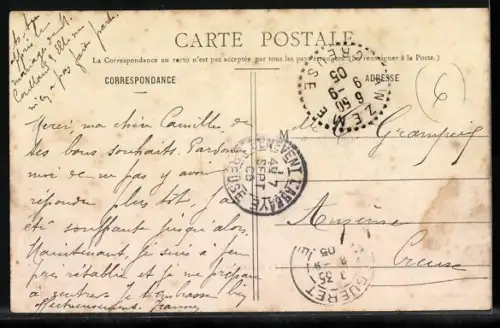 CARTE POSTALE
La Correspondance au recto n'est pas acceptée par tous les pays étrangers. (Se renseigner à la Poste.)
CORRESPONDANCE
ADRESSE
Merci ma chère Camille de
tes bons souhaits. Pardonne
moi de ne pas y avoir
répondu plus tôt, j'ai
été souffrante jusqu'alors.
Maintenant, je suis à peu
près rétablie et je me prépare
à rentrer. Je t'embrasse bien
affectueusement. Jeanne
n'en a pas fait part.
M
Anzême
Creuse
6
ANZEME
CREUSE
6 50
9 -9
05
BENEVENT-L'ABBAYE
CREUSE
7
SEPT
05
GUERET
3 35
05